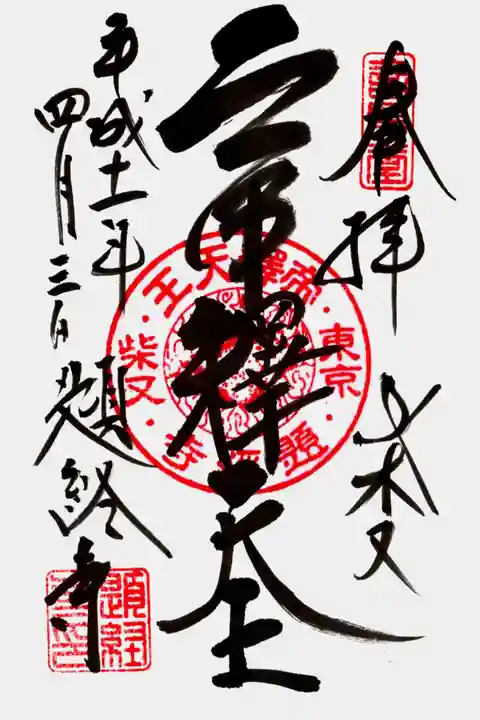 奉拝
柴又
帝釋天王
平成十一年
四月三日
題経寺
帝釋天王
東京
柴又
題経寺
題経